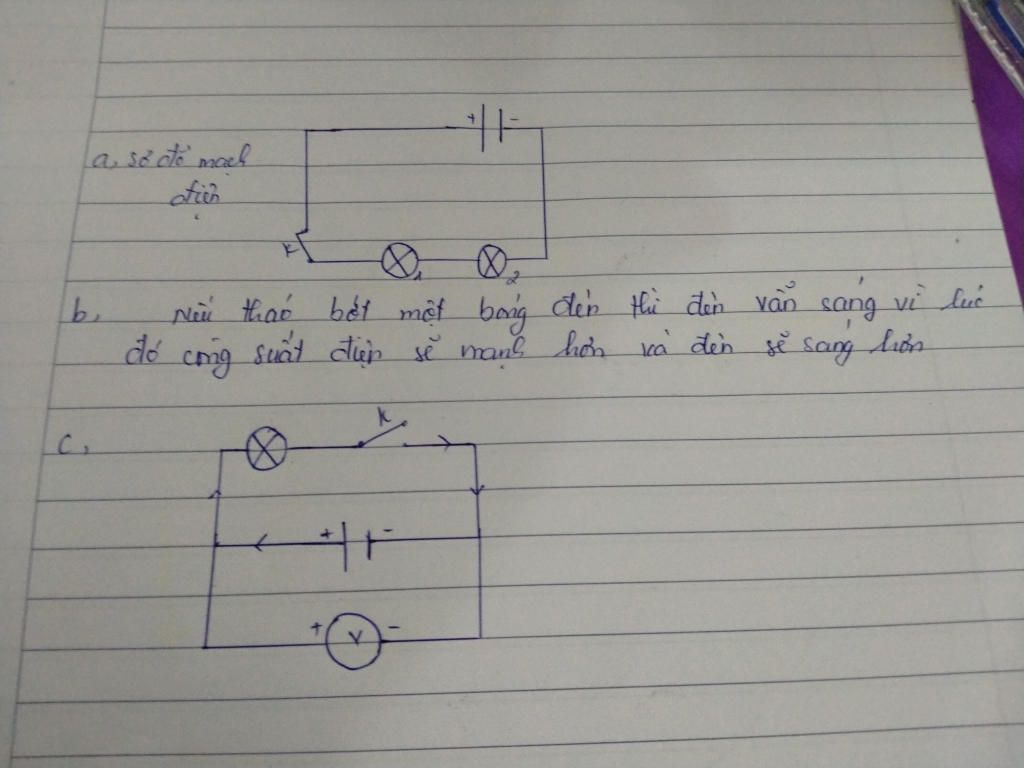 + -
a, sơ đồ mạch
điện
K
1 2
b, Nếu tháo bớt một bóng đèn thì đèn vẫn sáng vì lúc
đó công suất điện sẽ mạnh hơn và đèn sẽ sáng hơn
K
c,
+ -
+ V -